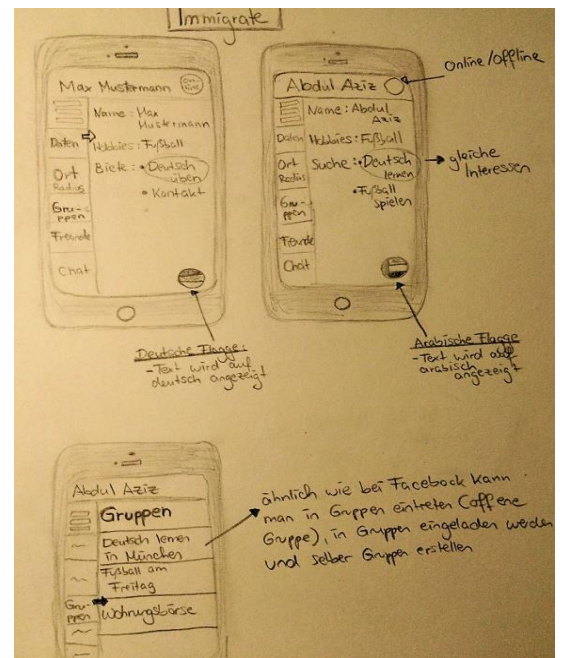 Immigrate
Max Mustermann
On-
line
Name : Max
Mustermann
Daten
Hobbies : Fußball
Ort
Radius
Biete : • Deutsch
üben
• Kontakt
Gru-
ppen
Freunde
Chat
Deutsche Flagge:
-Text wird auf
deutsch angezeigt
Abdul Aziz
Online/offline
Name : Abdul
Aziz
Daten
Hobbies : Fußball
Ort
Radius
Suche : • Deutsch
lernen
gleiche
Interessen
• Fußball
spielen
Gru-
ppen
Freunde
Chat
Arabische Flagge
-Text wird auf
arabisch
angezeigt
Abdul Aziz
Gruppen
Deutsch lernen
in München
Fußball am
Freitag
Gru-
ppen
Wohnungsbörse
ähnlich wie bei Facebook kann
man in Gruppen eintreten (offene
Gruppe), in Gruppen eingeladen werden
und selber Gruppen erstellen